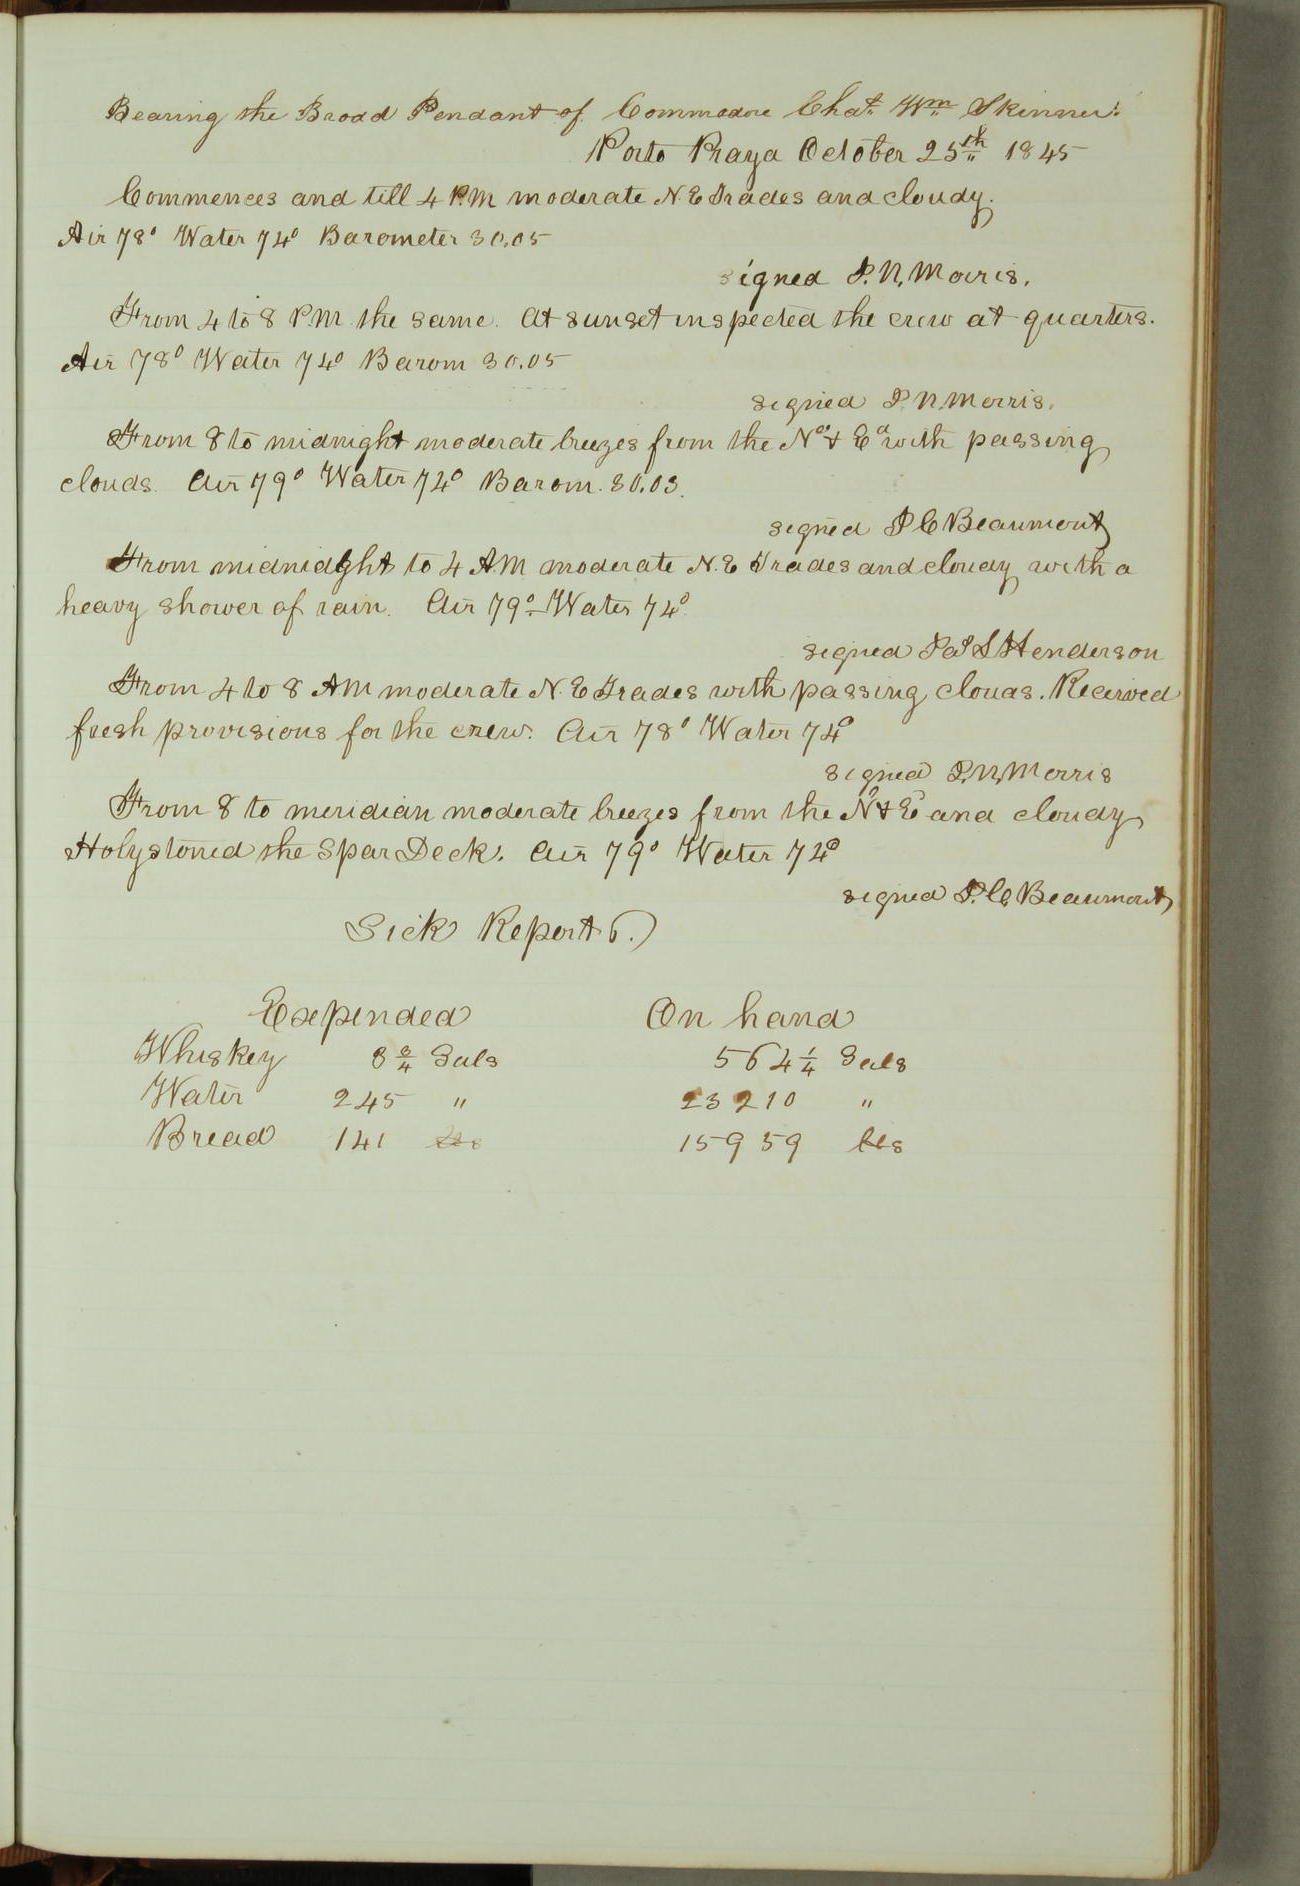 Bearing the Broad Pendant of Commodore Chas. Wm. Skinner.
Porto Praya October 25th 1845
Commences and till 4 P.M moderate N.E Trades and cloudy.
Air 78° Water 74° Barometer 30.05
signed J. N. Morris.
From 4 to 8 P.M. the same. At sunset inspected the crew at quarters.
Air 78° Water 74° Barom 30.05
signed J. N. Morris.
From 8 to midnight moderate breezes from the Nd & Ed with passing
clouds. Air 79° Water 74° Barom. 30.03.
signed J C Beaumont
From midnidght to 4 A.M moderate N.E Trades and cloudy with a
heavy shower of rain. Air 79° Water 74°.
signed Jas L Henderson
From 4 to 8 AM moderate N.E Trades with passing clouds. Received
fresh provisions for the crew. Air 78° Water 74°
signed J. N. Morris
From 8 to meridian moderate breezes from the Nd & Ed and cloudy
Holystoned the Spar Deck. Air 79° Water 74°
signed J. C. Beaumont
Sick Report 6.
Expended On hand
Whiskey 8 3/4 Gals 564 1/4 Gals
Water 245 " 23210 "
Bread 141 lbs 15959 lbs